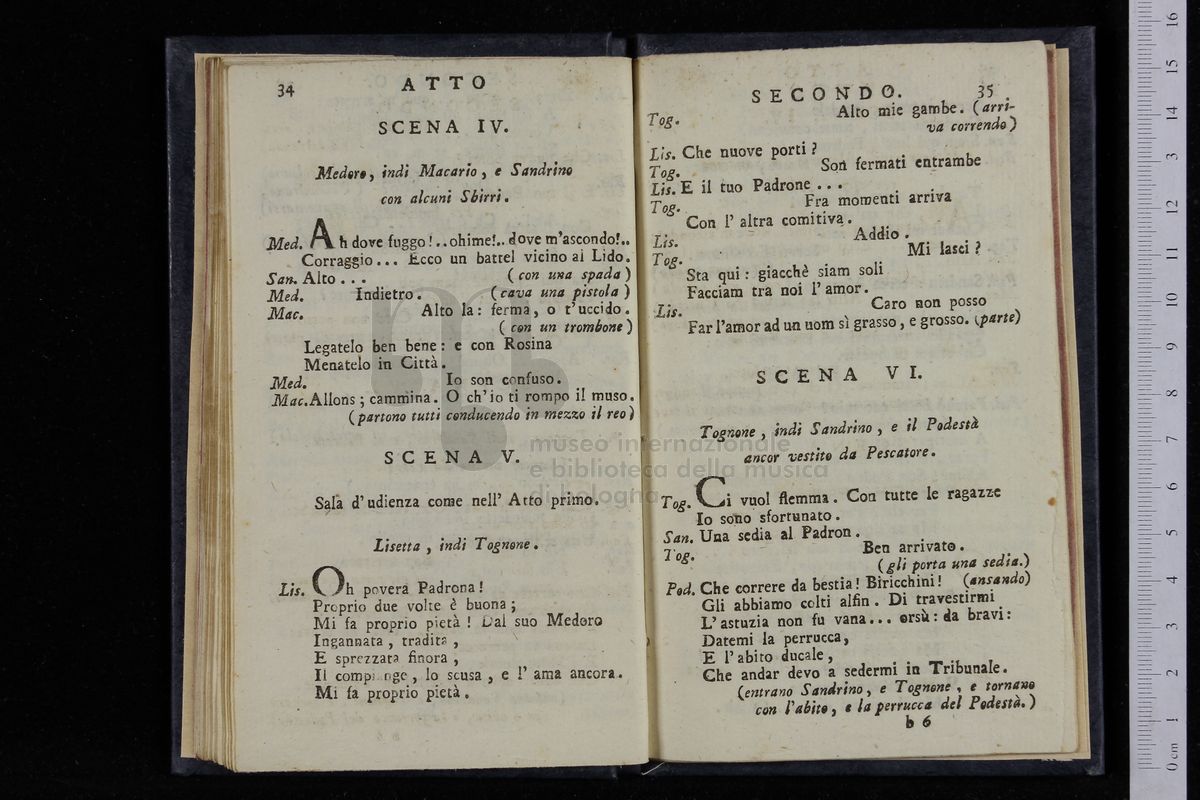 34 ATTO
SCENA IV.
Medoro, indi Macario, e Sandrino
con alcuni Sbirri.
Med. Ah dove fuggo!..ohime!..dove m'ascondo!..
Corraggio... Ecco un battel vicino al Lido.
San. Alto... (con una spada)
Med. Indietro. (cava una pistola)
Mac. Alto la: ferma, o t'uccido.
(con un trombone)
Legatelo ben bene: e con Rosina
Menatelo in Città.
Med. Io son confuso.
Mac. Allons; cammina. O ch'io ti rompo il muso.
(partono tutti conducendo in mezzo il reo)
SCENA V.
Sala d'udienza come nell' Atto primo.
Lisetta, indi Tognone.
Lis. Oh povera Padrona!
Proprio due volte è buona;
Mi fa proprio pietà! Dal suo Medoro
Ingannata, tradita,
E sprezzata finora,
Il compiange, lo scusa, e l'ama ancora.
Mi fa proprio pietà.
SECONDO. 35
Tog. Alto mie gambe. (arri-
va correndo)
Lis. Che nuove porti?
Tog. Son fermati entrambe
Lis. E il tuo Padrone...
Tog. Fra momenti arriva
Con l'altra comitiva.
Lis. Addio.
Tog. Mi lasci?
Sta qui: giacchè siam soli
Facciam tra noi l'amor.
Lis. Caro non posso
Far l'amor ad un uom sì grasso, e grosso. (parte)
SCENA VI.
Tognone, indi Sandrino, e il Podestà
ancor vestito da Pescatore.
Tog. Ci vuol flemma. Con tutte le ragazze
Io sono sfortunato.
San. Una sedia al Padron.
Tog. Ben arrivato.
(gli porta una sedia.)
Pod. Che correre da bestia! Biricchini! (ansando)
Gli abbiamo colti alfin. Di travestirmi
L'astuzia non fu vana... orsù: da bravi:
Datemi la perrucca,
E l'abito ducale,
Che andar devo a sedermi in Tribunale.
(entrano Sandrino, e Tognone, e tornano
con l'abito, e la perrucca del Podestà.)
b 6
m
museo internazionale
e biblioteca della musica
di bologna
0 cm 1 2 3 4 5 6 7 8 9 10 11 12 13 14 15 16